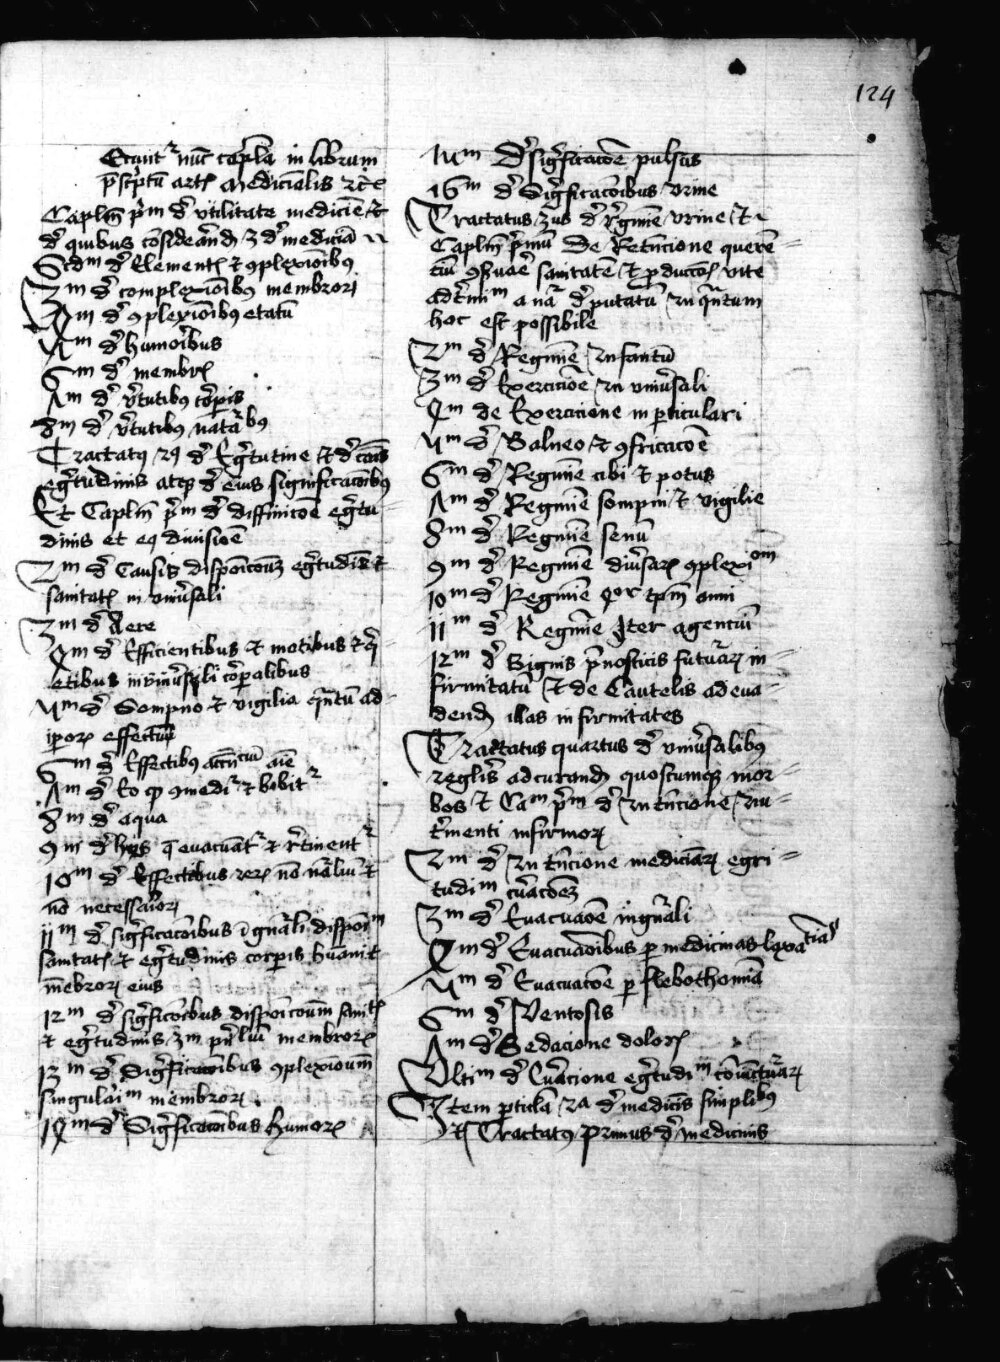 124
Secuntur nunc capla in librum
prescriptum artis medicinalis etc
Caplm prim de utilitate medicine et
de quibus considerand 3 de medicina
Scdm de Elementis et 9plexioibus
3m de complexioibus membror
4m de 9plexionibus etatum
5m de humoribus
6m de membris
7m de virtutibus corporis
8m de virtutibus natalibus
Tractatus 2us de Egritudine et de causis
egritudinis atque de eius significacoibus
Et Caplm prim de diffinicoe egritu-
dinis et eius divisioe
2m de Causis disposicionum egritudinis et
sanitatis in universali
3m de Aere
4m de Efficientibus et motibus et qui-
etibus in universali corporalibus
5m de Sompno et vigilia quantum ad
ipsorum effectum
6m de Effectibus accidencium anime
7m de Eo quod comeditur et bibitur
8m de aqua
9m de hiis que evacuantur et retinentur
10m de Effectibus rerum non naturalium et
non necessariorum
11m de significacoibus in generali disposicionum
sanitatis et egritudinis corporis humani et
membrorum eius
12m de significacoibus disposicionum sanitatis
et egritudinis 3m particularium membrorum
13m de Significacoibus 9plexionum
singularium membrorum
14m de Significacoibus humorum
15m De significacoe pulsus
16m de Significacoibus urine
Tractatus 3us de regimine urine et
Caplm primum De Retencione queren-
cium 9servacione sanitatem et produccois vite
ad terminum a natura deputatum in quantum
hoc est possibile
2m de Regimine Infantum
3m de Exercicioe in universali
4m de Exercicione in particulari
5m de Balneo et 9fricacoe
6m de Regimine cibi et potus
7m de Regimine sompni et vigilie
8m de Regimine senum
9m de Regimine diversarum 9plexionum
10m de Regimine 4or tempm anni
11m de Regimine Iter agencium
12m de Signis pronosticis futurarum in-
firmitatum et de Cautelis ad eva-
dend illas infirmitates
Tractatus quartus de universalibus
reglis ad curand quoscumque mor-
bos et Cam prim de intencione nu-
trimenti infirmorum
2m de Intencione medicinarum egri-
tudinum curacoem
3m de Evacuacoe in generali
4m de Evacuacoibus per medicinas laxativas
5m de Evacuacoe per flebothomia
6m de Ventosis
7m de Sedacione doloris
Ultim de Curacione egritudinum coniuncturarum
Item particula 2a de medicinis simplicibus
Et Tractatus Primus de medicinis